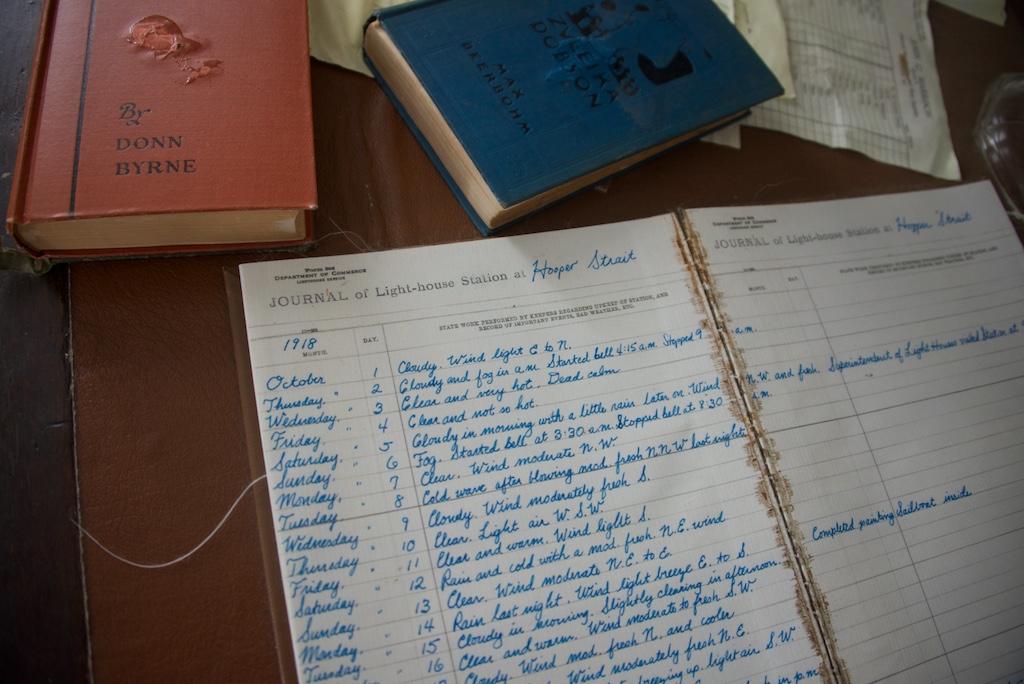 By
DONN
BYRNE
ZULEIKA
DOBSON
MAX
BEERBOHM
DEPARTMENT OF COMMERCE
LIGHTHOUSE SERVICE
JOURNAL of Light-house Station at Hooper Strait
1918
MONTH.
DAY.
STATE WORK PERFORMED BY KEEPERS REGARDING UPKEEP OF STATION, AND
RECORD OF IMPORTANT EVENTS, BAD WEATHER, ETC.
October 1 Cloudy. Wind light E to N.
Thursday " 2 Cloudy and fog in a.m Started bell 4:15 a.m. Stopped 9 a.m.
Wednesday " 3 Clear and very hot. Dead calm
Friday " 4 Clear and not so hot.
Saturday " 5 Cloudy in morning with a little rain later on. Wind N.W. and fresh. Superintendent of Light Houses visited Station at
Sunday " 6 Fog. Started bell at 3:30 a.m. Stopped bell at 8:30 a.m.
Monday " 7 Clear. Wind moderate N.W
Tuesday " 8 Cold wave after blowing mod. fresh N.N.W last night.
Wednesday " 9 Cloudy. Wind moderately fresh S.
Thursday " 10 Clear. Light air W.S.W.
Friday " 11 Clear and warm. Wind light S.
Saturday " 12 Rain and cold with a mod. fresh. N.E. wind
Sunday " 13 Clear. Wind moderate N.E. to E.
Monday " 14 Rain last night. Wind light breeze E. to S.
Tuesday " 15 Cloudy in morning. Slightly clearing in afternoon.
16 Clear and warm. Wind moderate to fresh S.W.
Cloudy. Wind mod. fresh N. and cooler
Wind moderately fresh N.E.
breezing up. light air S.W
in p.m
DEPARTMENT OF COMMERCE
JOURNAL of Light-house Station at Hooper Strait
MONTH.
DAY.
Completed painting Sailboat inside